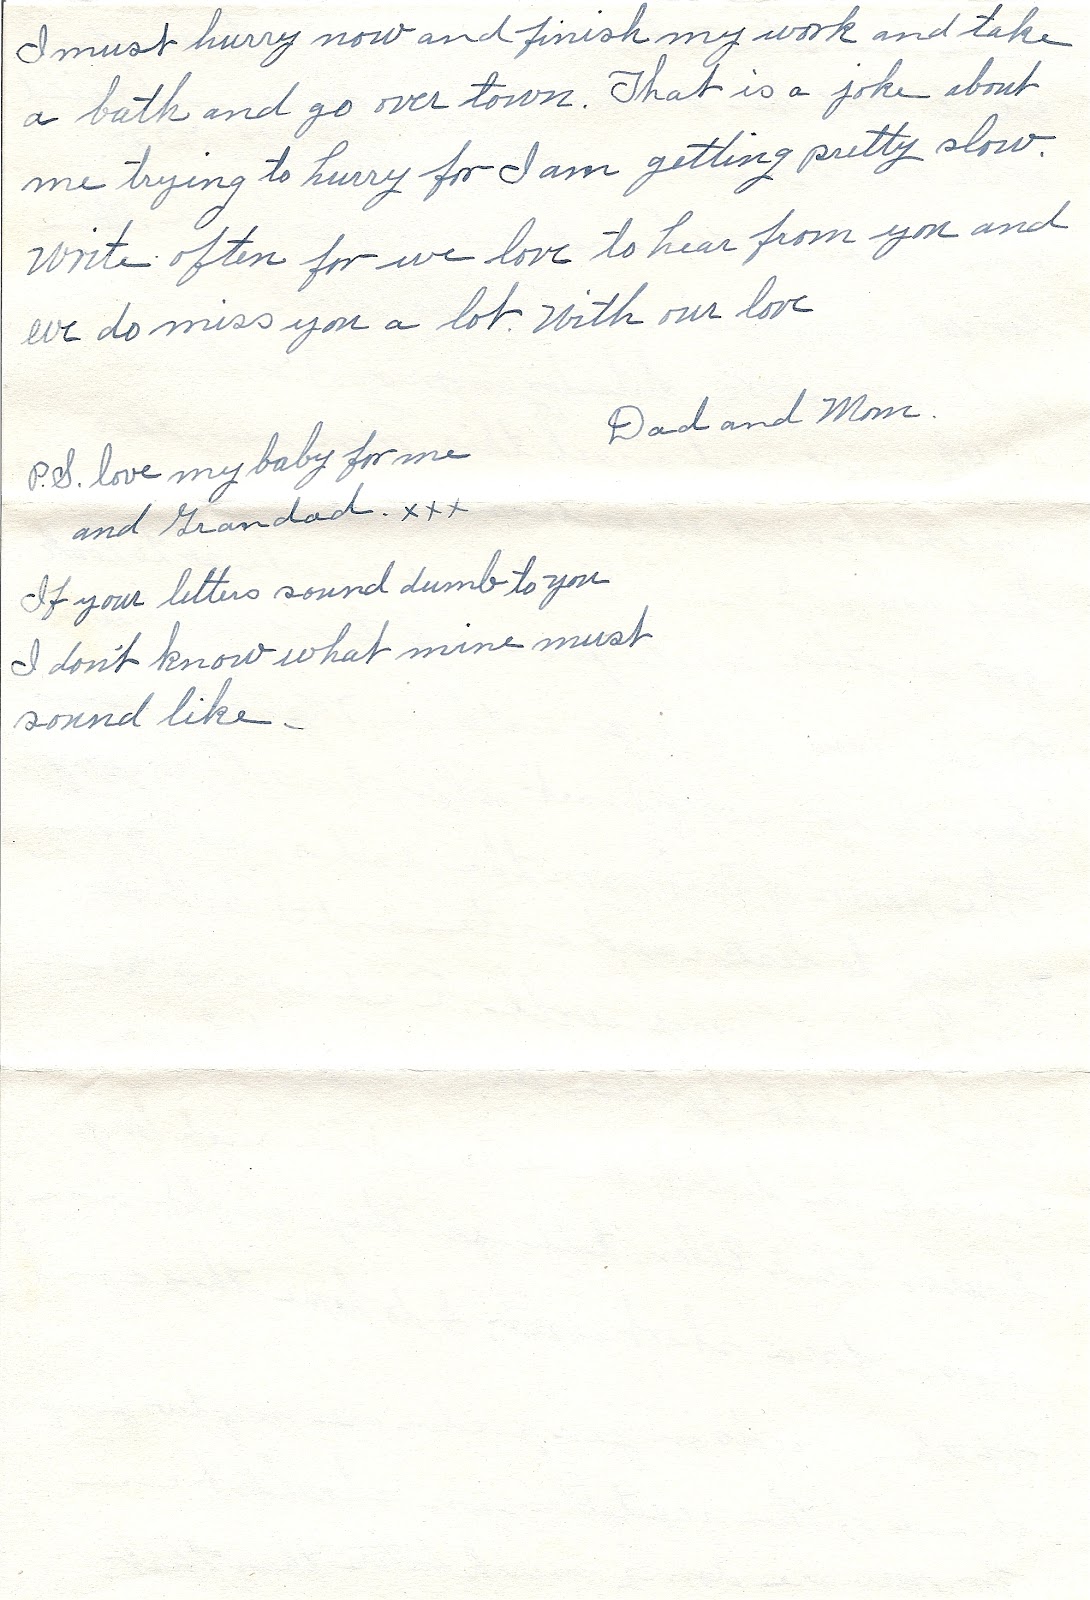 I must hurry now and finish my work and take
a bath and go over town. That is a joke about
me trying to hurry for I am getting pretty slow.
Write often for we love to hear from you and
we do miss you a lot. With our love
Dad and Mom.
P.S. love my baby for me
and Grandad. xxx
If your letters sound dumb to you
I don't know what mine must
sound like_